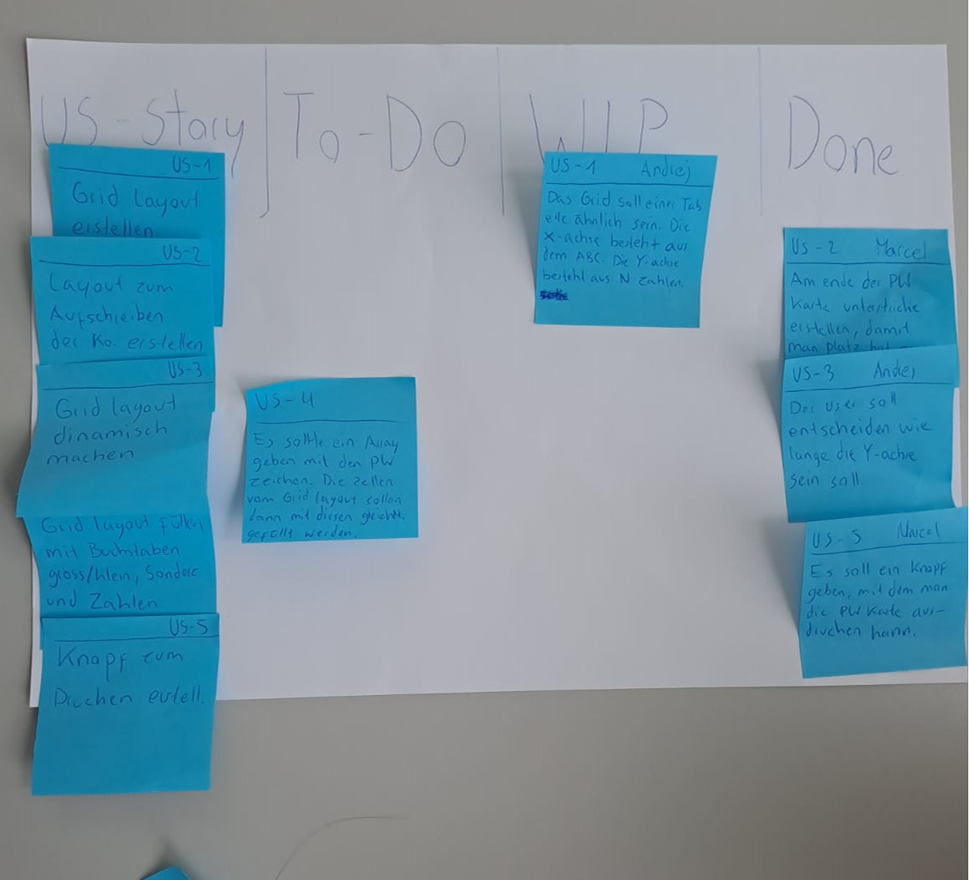 US-Story
To-Do
WIP
Done
US-1
Grid Layout
erstellen
US-2
Layout zum
Aufschreiben
der Ko. erstellen
US-3
Grid layout
dinamisch
machen
Grid layout füllen
mit Buchstaben
gross/klein, Sonderz
und Zahlen
US-5
Knopf zum
Drucken erstell.
US-4
Es sollte ein Array
geben mit den PW
zeichen. Die Zellen
vom Grid layout sollen
dann mit diesen
gefüllt werden.
US-1 Andrej
Das Grid soll einer Tab
elle ähnlich sein. Die
X-achse besteht aus
dem ABC. Die Y-achse
besteht aus N Zahlen.
US-2 Marcel
Am ende der PW
Karte unterstriche
erstellen, damit
man platz hat
US-3 Andrej
Der User soll
entscheiden wie
lange die Y-achse
sein soll.
US-5 Marcel
Es soll ein Knopf
geben, mit dem man
die PW Karte aus-
drucken kann.